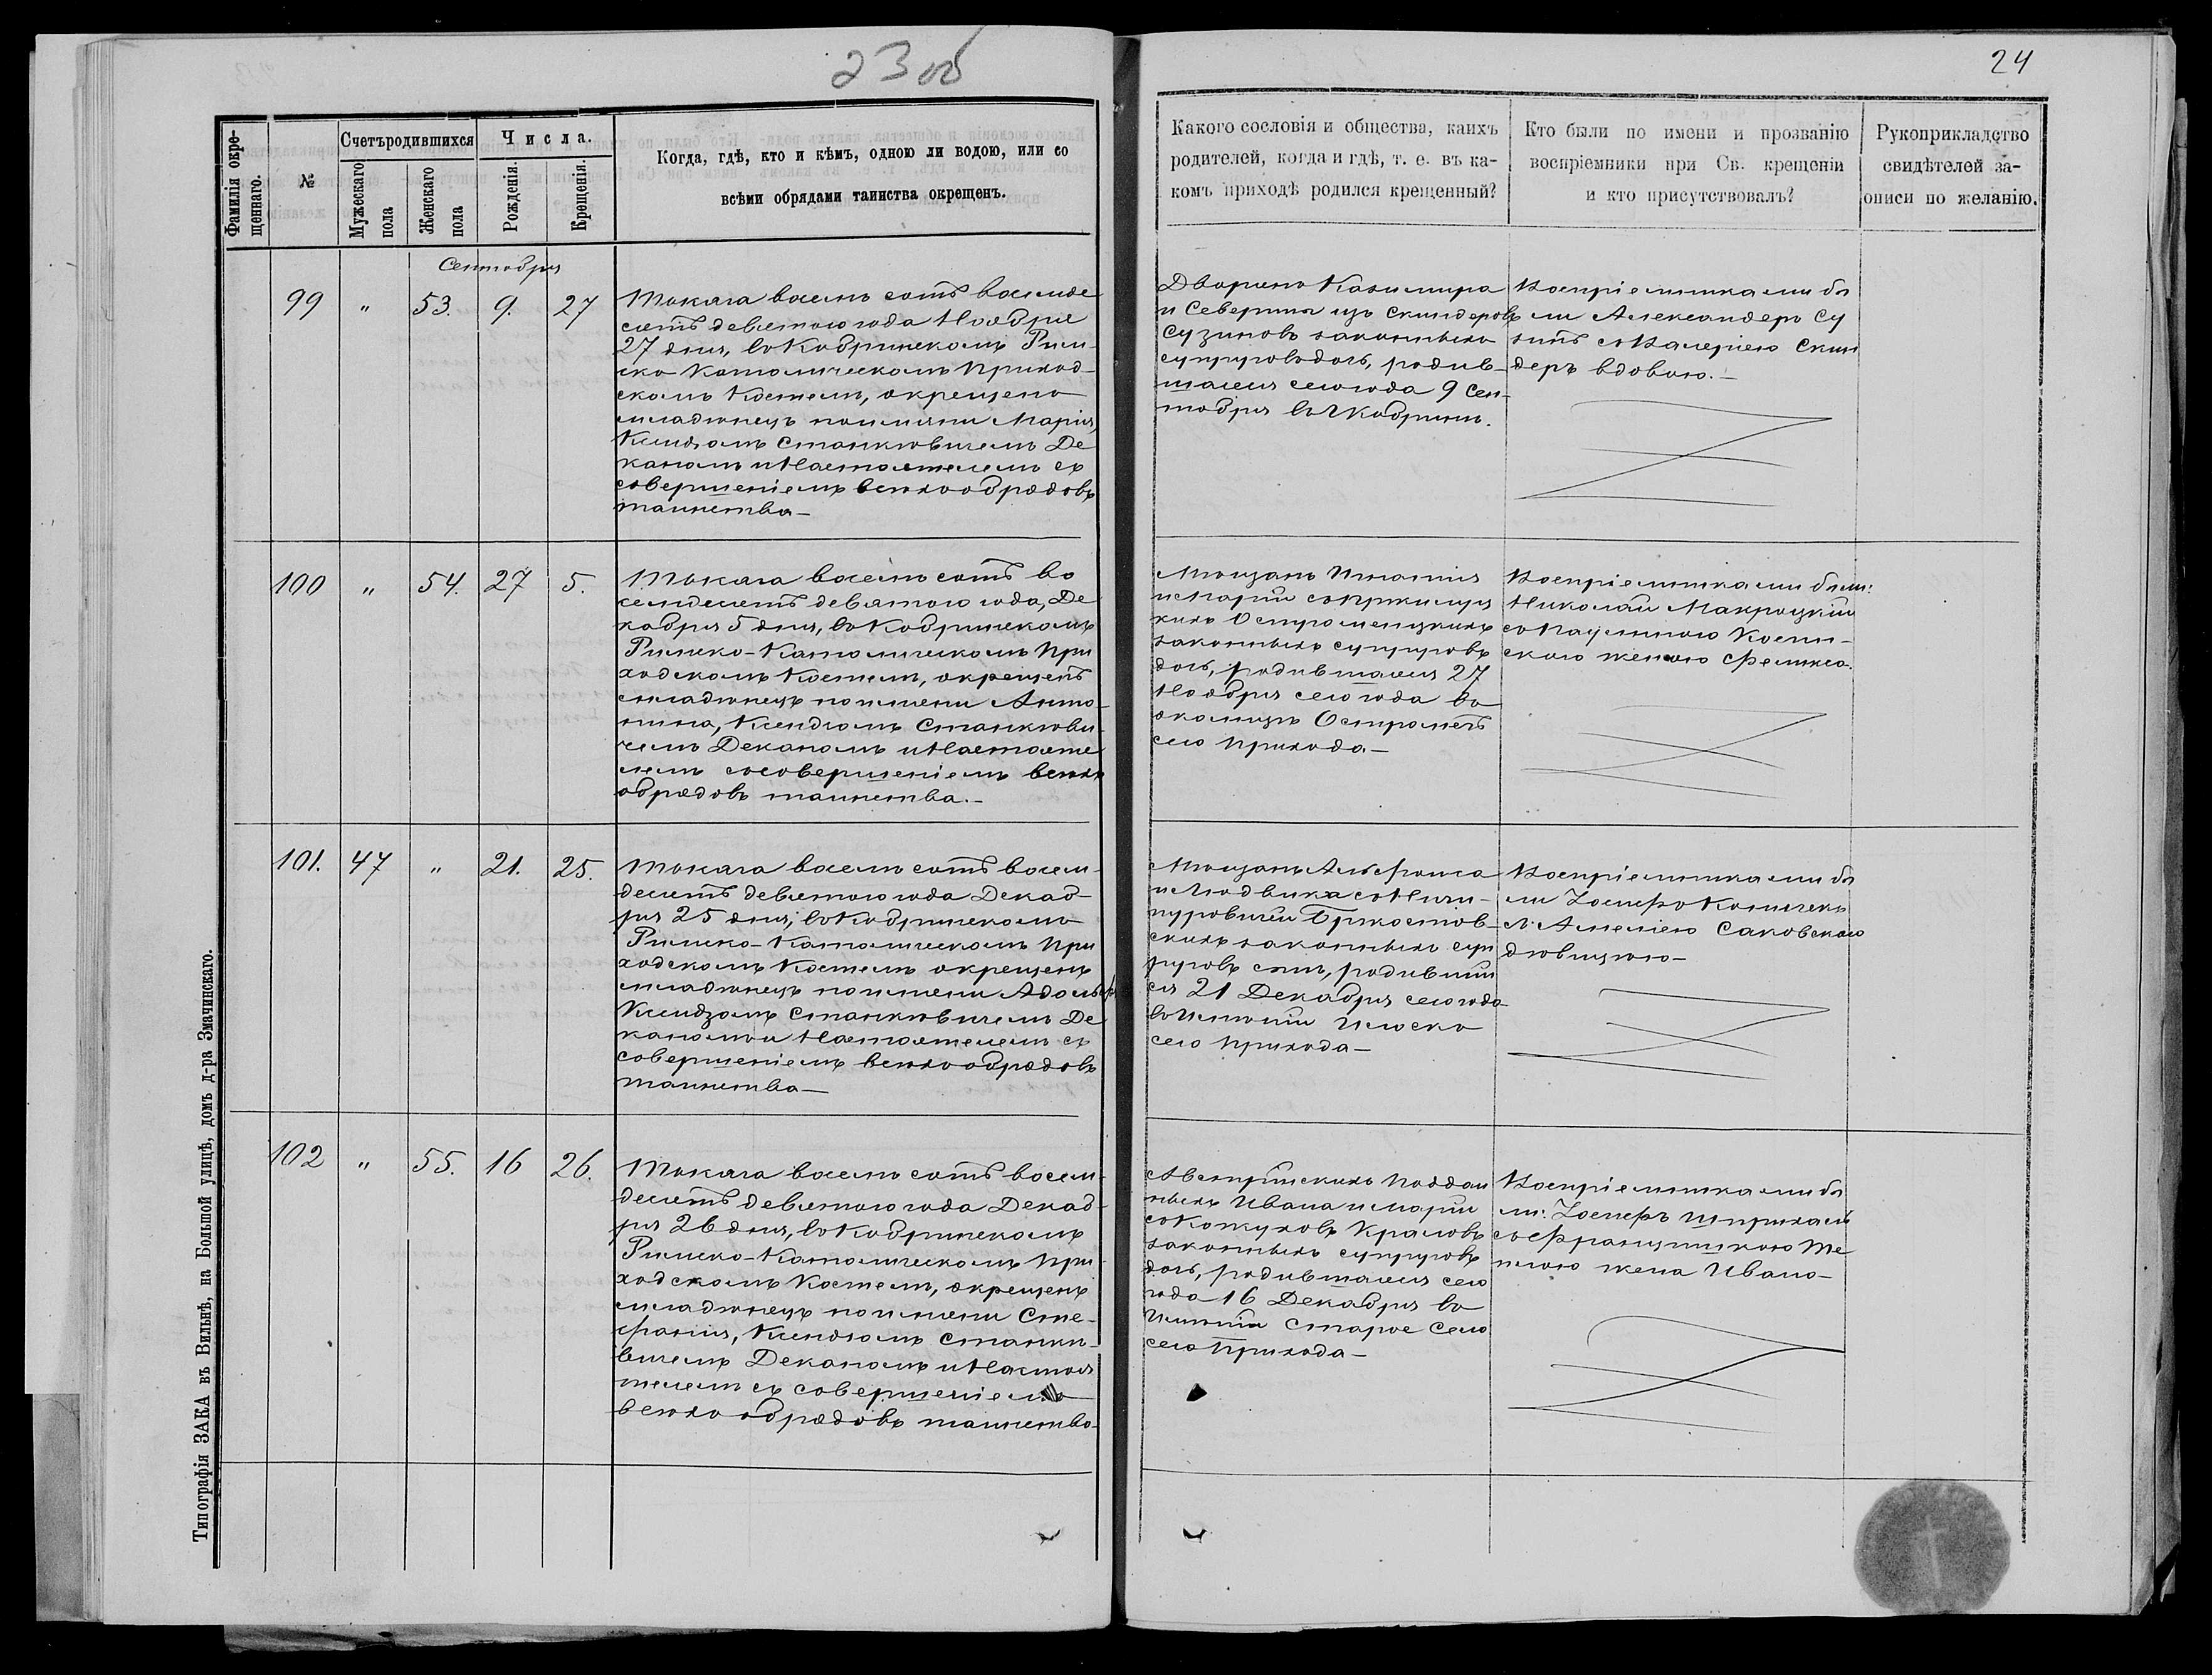 23 об
24
Фамилія окре-
щеннаго.
№
Счетъ родившихся
Мужескаго
пола
Женскаго
пола
Числа.
Рожденія.
Крещенія.
Когда, гдѣ, кто и кѣмъ, одною ли водою, или со
всѣми обрядами таинства окрещенъ.
Какого сословія и общества, какихъ
родителей, когда и гдѣ, т. е. въ ка-
комъ приходѣ родился крещенный?
Кто были по имени и прозванію
воспріемники при Св. крещеніи
и кто присутствовалъ?
Рукоприкладство
свидѣтелей за-
описи по желанію.
Сентября
99 " 53. 9. 27
Тысяча восемь сотъ восемде
сятъ девятого года Ноября
27 дня, въ Кобринскомъ Рим-
ско Католическомъ Приход-
скомъ Костелѣ, окрещено
младенецъ по имяни Марія,
Ксендзомъ Станкювичемъ Де
каномъ и Настоятелемъ съ
совершеніемъ всѣхъ обрядовъ
таинства —
Дворянъ Казимира
и Северины изъ Скиндеровъ
Сузиновъ законныхъ
супруговъ дочь, родив-
шаяся сего года 9 Сен-
тября въ г Кобринѣ.
Воспріемниками бы
ли Александеръ Су
зинъ съ Валеріею Скин
деръ вдовою. —
100 " 54. 27 5.
Тысяча восемь сотъ во
семдесятъ девятого года, Де
кабря 5 дня, въ Кобринскомъ
Римско-Католическомъ При
ходскомъ Костелѣ, окрещенъ
младенецъ по имени Анто-
нина, Ксендзомъ Станкюви-
чемъ Деканомъ и Настояте
лемъ съ совершеніемъ всѣхъ
обрядовъ таинства. —
Мѣщанъ Игнатія
и Маріи
Остромецкихъ
законныхъ супруговъ
дочь, родившаяся 27
Ноября сего года въ
околицѣ Остромечъ
сего прихода —
Воспріемниками были:
Николай Макроцкій
съ Паулиною
женою Феликса.
101. 47 " 21. 25.
Тысяча восемь сотъ восем-
десятъ девятого года Декаб-
ря 25 дня, въ Кобринскомъ
Римско-Католическомъ При
ходскомъ Костелѣ окрещенъ
младенецъ по имени Адольфъ
Ксендзомъ Станкювичемъ Де
каномъ и Настоятелемъ съ
совершеніемъ всѣхъ обрядовъ
таинства —
Мѣщанъ Альфонса
и Людвика съ Ничи-
пуровичей Бржостов-
скихъ законныхъ суп
руговъ сынъ, родивший
ся 21 Декабря сего года
въ Имѣніи Илоско
сего прихода —
Воспріемниками бы
ли Іосифъ
съ Амеліею Саковскаго
дѣвицею —
102 " 55. 16 26.
Тысяча восемь сотъ восем-
десятъ девятого года Декаб-
ря 26 дня, въ Кобринскомъ
Римско-Католическомъ При-
ходскомъ Костелѣ, окрещенъ
младенецъ по имени Сте-
фанія, Ксендзомъ Станкю-
вичемъ Деканомъ и Настоя
телемъ съ совершеніемъ
всѣхъ обрядовъ таинства
Австрійскихъ Поддан
ныхъ Ивана и Маріи
съ Кожуховъ Краловъ
законныхъ супруговъ
дочь, родившаяся сего
года 16 Декабря въ
Имѣніи Старое Село
сего прихода —
Воспріемниками бы
ли: Іосифъ
съ Францишкою
жена Ивана —
Типографія ЗАКА въ Вильнѣ, на Большой улицѣ, домъ д-ра Змачинскаго.